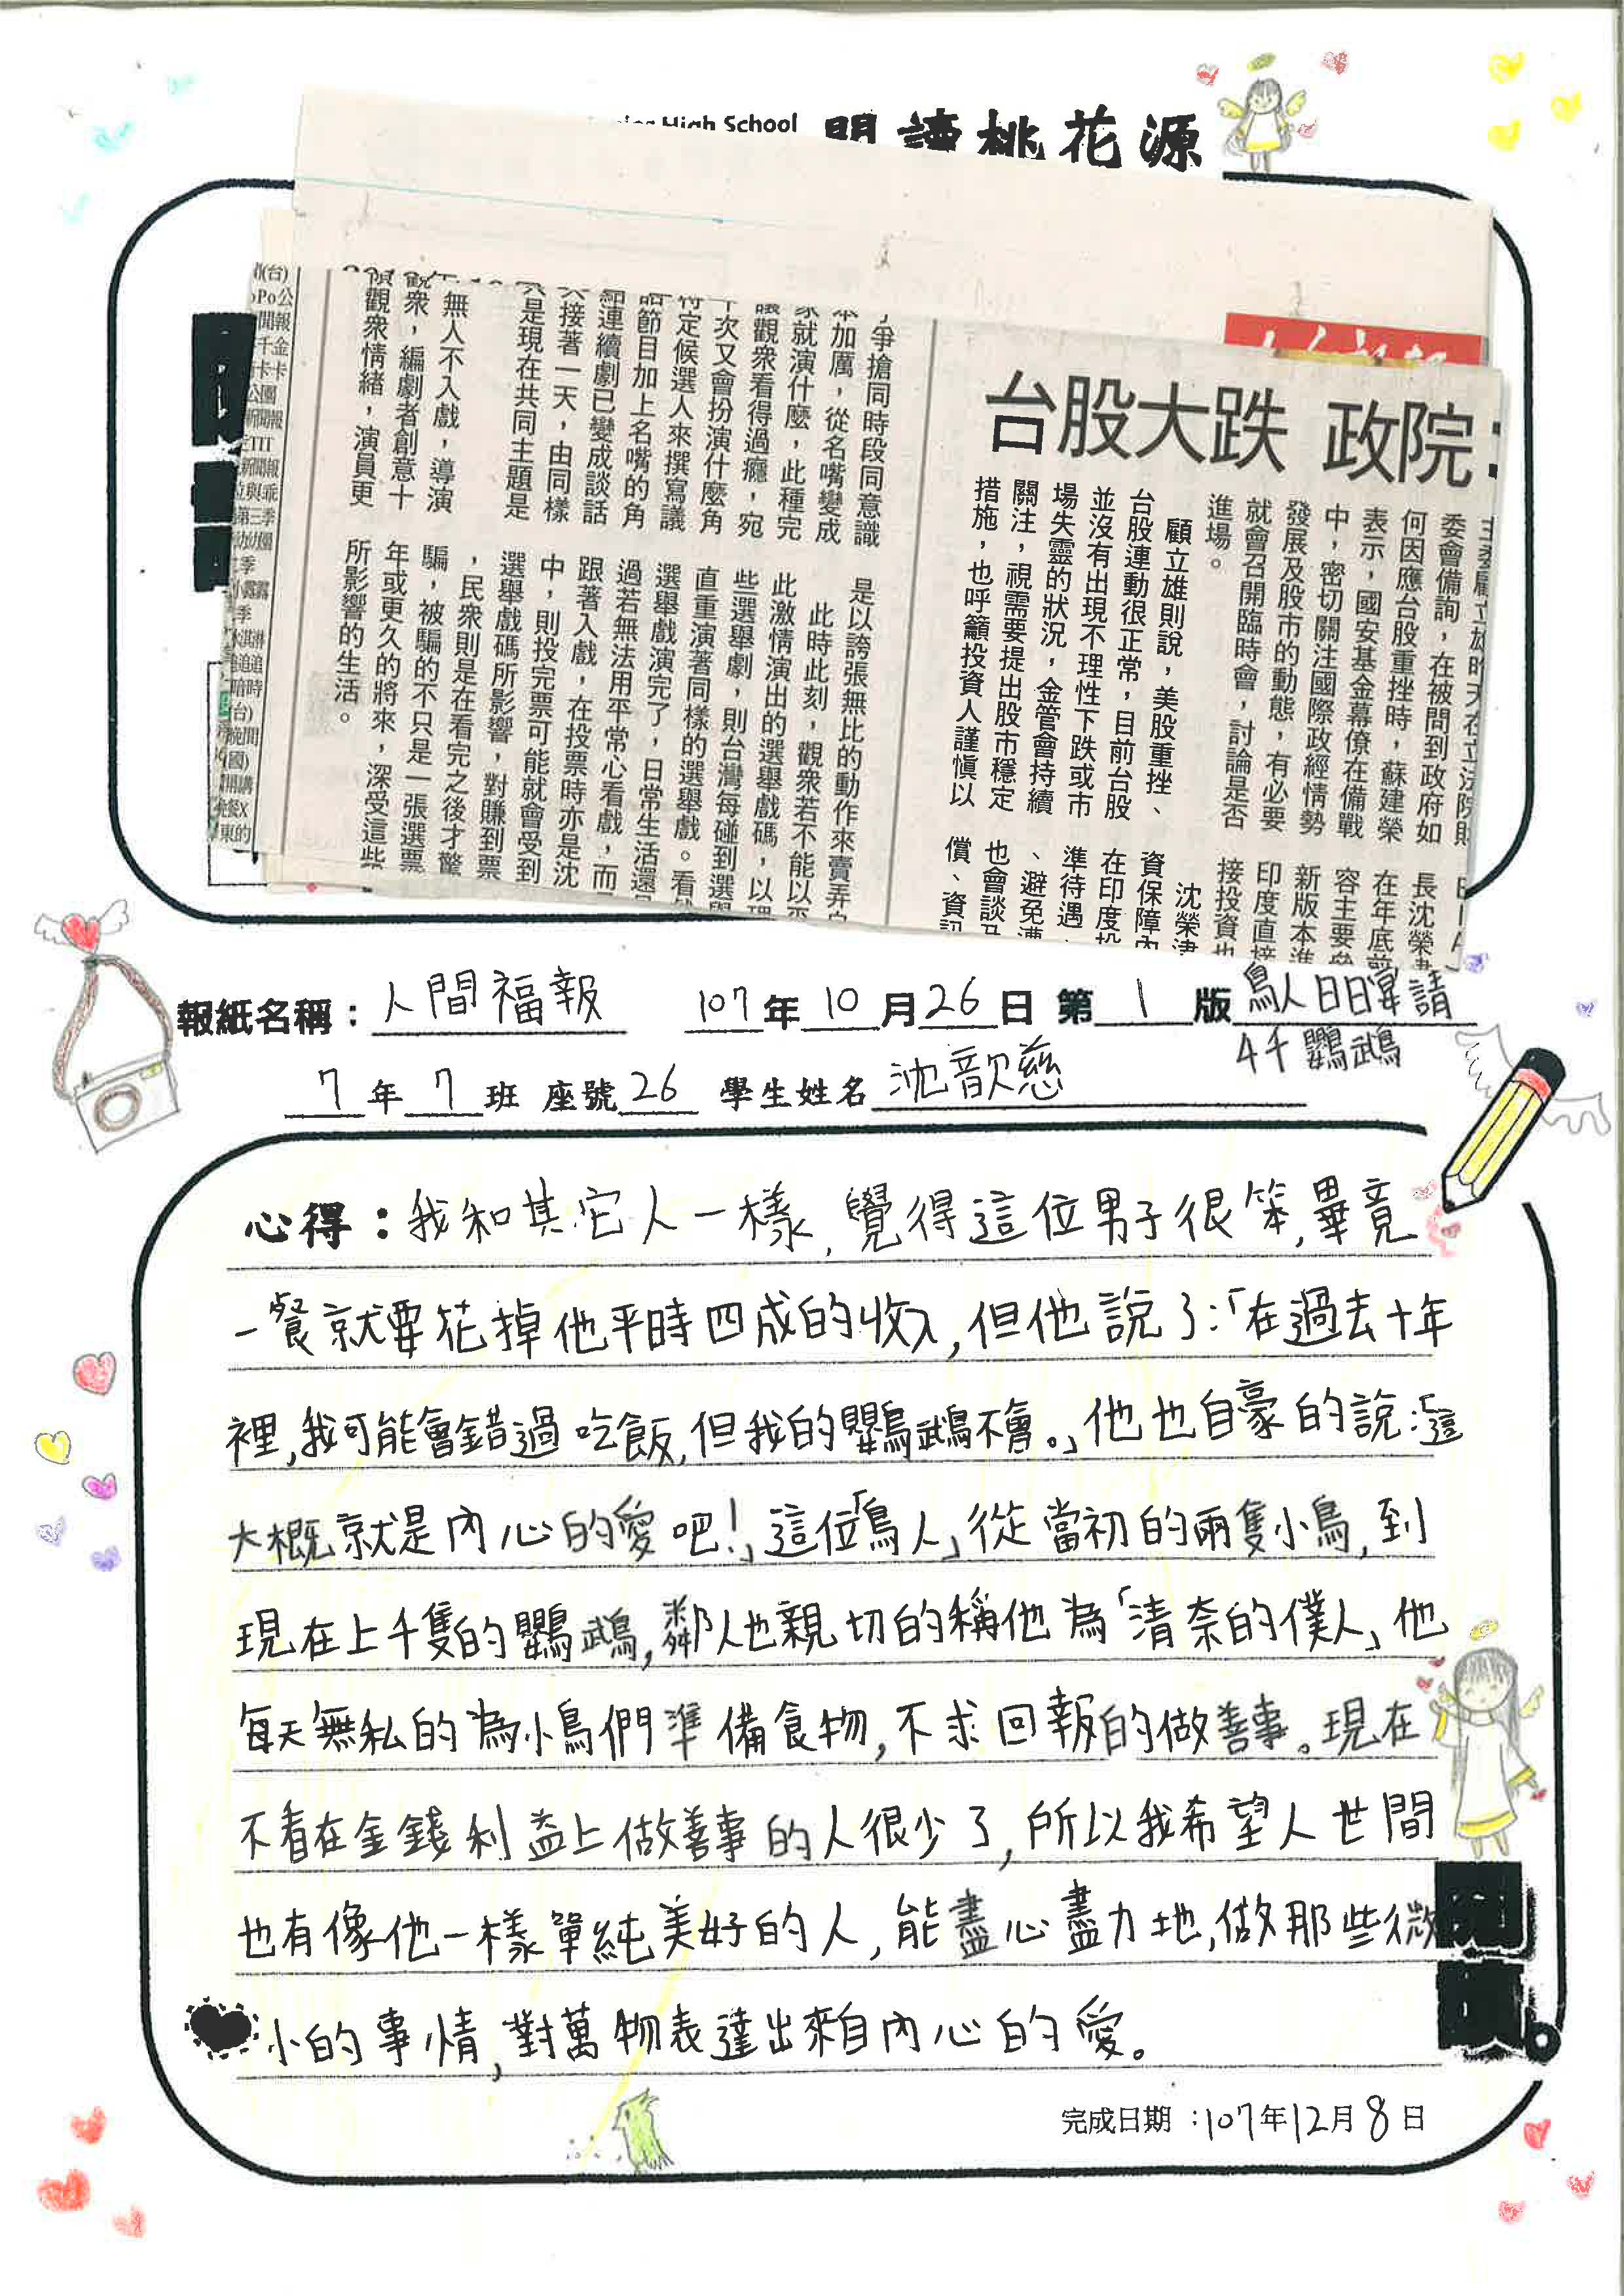 High School 閱讀桃花源
台股大跌 政院
委會備詢，在被問到政府如
何因應台股重挫時，蘇建榮
表示，國安基金幕僚在備戰
中，密切關注國際政經情勢
發展及股市的動態，有必要
就會召開臨時會，討論是否
進場。
顧立雄則說，美股重挫、
台股連動很正常，目前台股
並沒有出現不理性下跌或市
場失靈的狀況，金管會持續
關注，視需要提出股市穩定
措施，也呼籲投資人謹慎以
長沈榮
在年底前
容主要
新版本進
印度直接
接投資也
沈榮津
資保障內
在印度投
準待遇、
、避免
也會談及
償、資訊
爭搶同時段同意識
本加厲，從名嘴變成
家就演什麼，此種完
讓觀眾看得過癮，宛
下次又會扮演什麼角
特定候選人來撰寫議
話節目加上名嘴的角
結連續劇已變成談話
接著一天，由同樣
只是現在共同主題是
無人不入戲，導演
觀眾，編劇者創意十
積觀眾情緒，演員更
是以誇張無比的動作來賣弄
此時此刻，觀眾若不能以平
此激情演出的選舉戲碼，以理
些選舉劇，則台灣每碰到選舉
直重演著同樣的選舉戲。看
選舉戲演完了，日常生活還是
過若無法用平常心看戲，而
跟著入戲，在投票時亦是沈
中，則投完票可能就會受到
選舉戲碼所影響，對賺到票
，民眾則是在看完之後才驚
騙，被騙的不只是一張選票
年或更久的將來，深受這些
所影響的生活。
報紙名稱：人間福報 107年10月26日 第1版 鳥人日日宴請
4千鸚鵡
7年7班 座號26 學生姓名 沈歆慈
心得：我和其它人一樣，覺得這位男子很笨，畢竟
一餐就要花掉他平時四成的收入，但他說了：「在過去十年
裡，我可能會錯過吃飯，但我的鸚鵡不會。」他也自豪的說：「這
大概就是內心的愛吧！」這位「鳥人」從當初的兩隻小鳥，到
現在上千隻的鸚鵡，鄰人也親切的稱他為「清奈的僕人」他
每天無私的為小鳥們準備食物，不求回報的做善事。現在
不看在金錢利益上做善事的人很少了，所以我希望人世間
也有像他一樣單純美好的人，能盡心盡力地，做那些微
小的事情，對萬物表達出來自內心的愛。
完成日期：107年12月8日
閱讀。